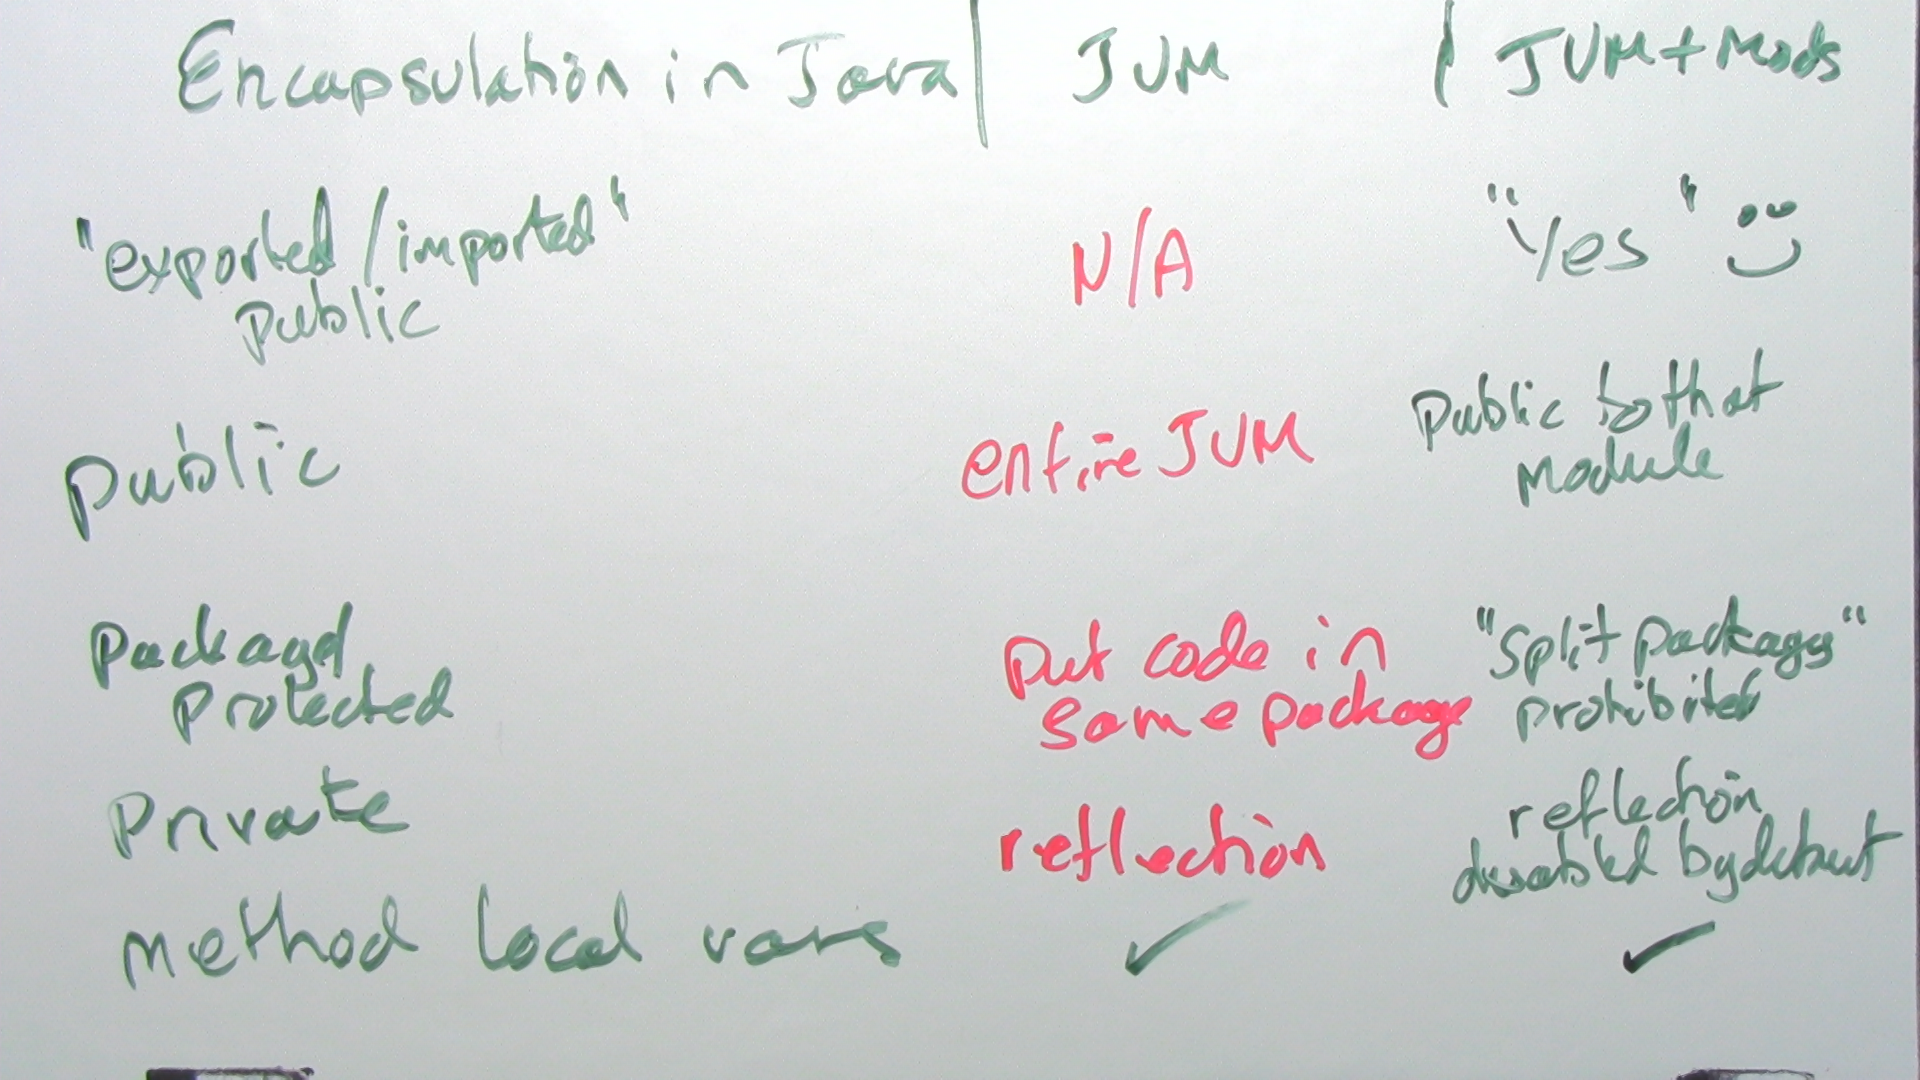 Encapsulation in Java | JVM | JVM + Mods
"exported/imported" N/A "Yes"
public
public entire JVM public to that
module
Packaged put code in "split packages"
protected same package prohibited
Private reflection reflection
disabled by default
method local vars ✓ ✓